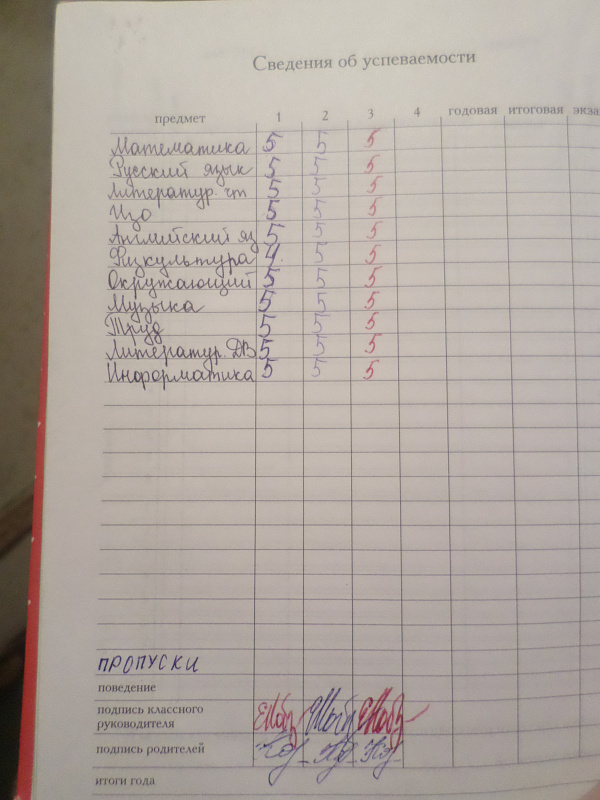 Сведения об успеваемости
предмет 1 2 3 4 годовая итоговая экза
Математика 5 5 5
Русский язык 5 5 5
Литератур. чт 5 5 5
Изо 5 5 5
Английский яз 5 5 5
Физкультура 4. 5 5
Окружающий 5 5 5
Музыка 5 5 5
Труд 5 5 5
Литератур. ДВ 5 5 5
Информатика 5 5 5
ПРОПУСКИ
поведение
подпись классного
руководителя
подпись родителей
итоги года